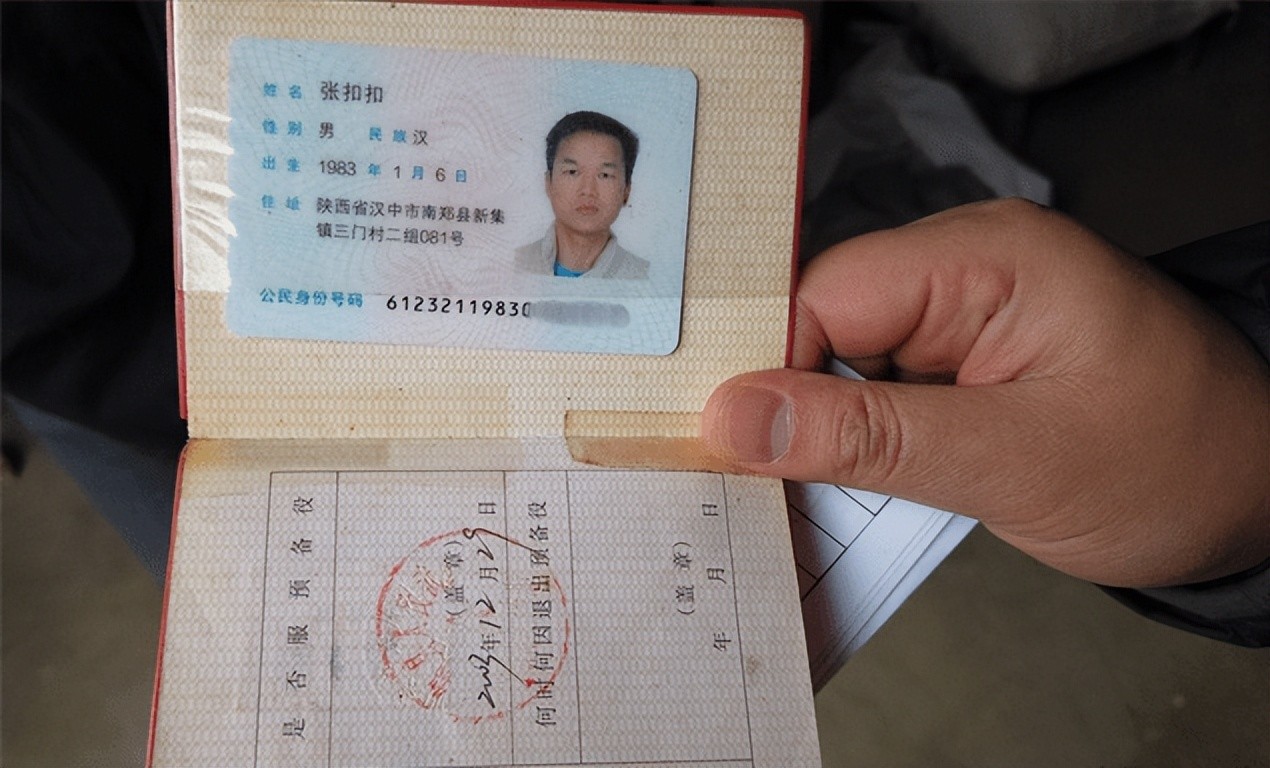 姓名 张扣扣
性别 男 民族 汉
出生 1983 年 1 月 6 日
住址 陕西省汉中市南郑县新集
镇三门村二组081号
公民身份号码 6123211983
是否服预备役
(盖章)
2003年12月29日
何时何因退出预备役
(盖章)
年月日